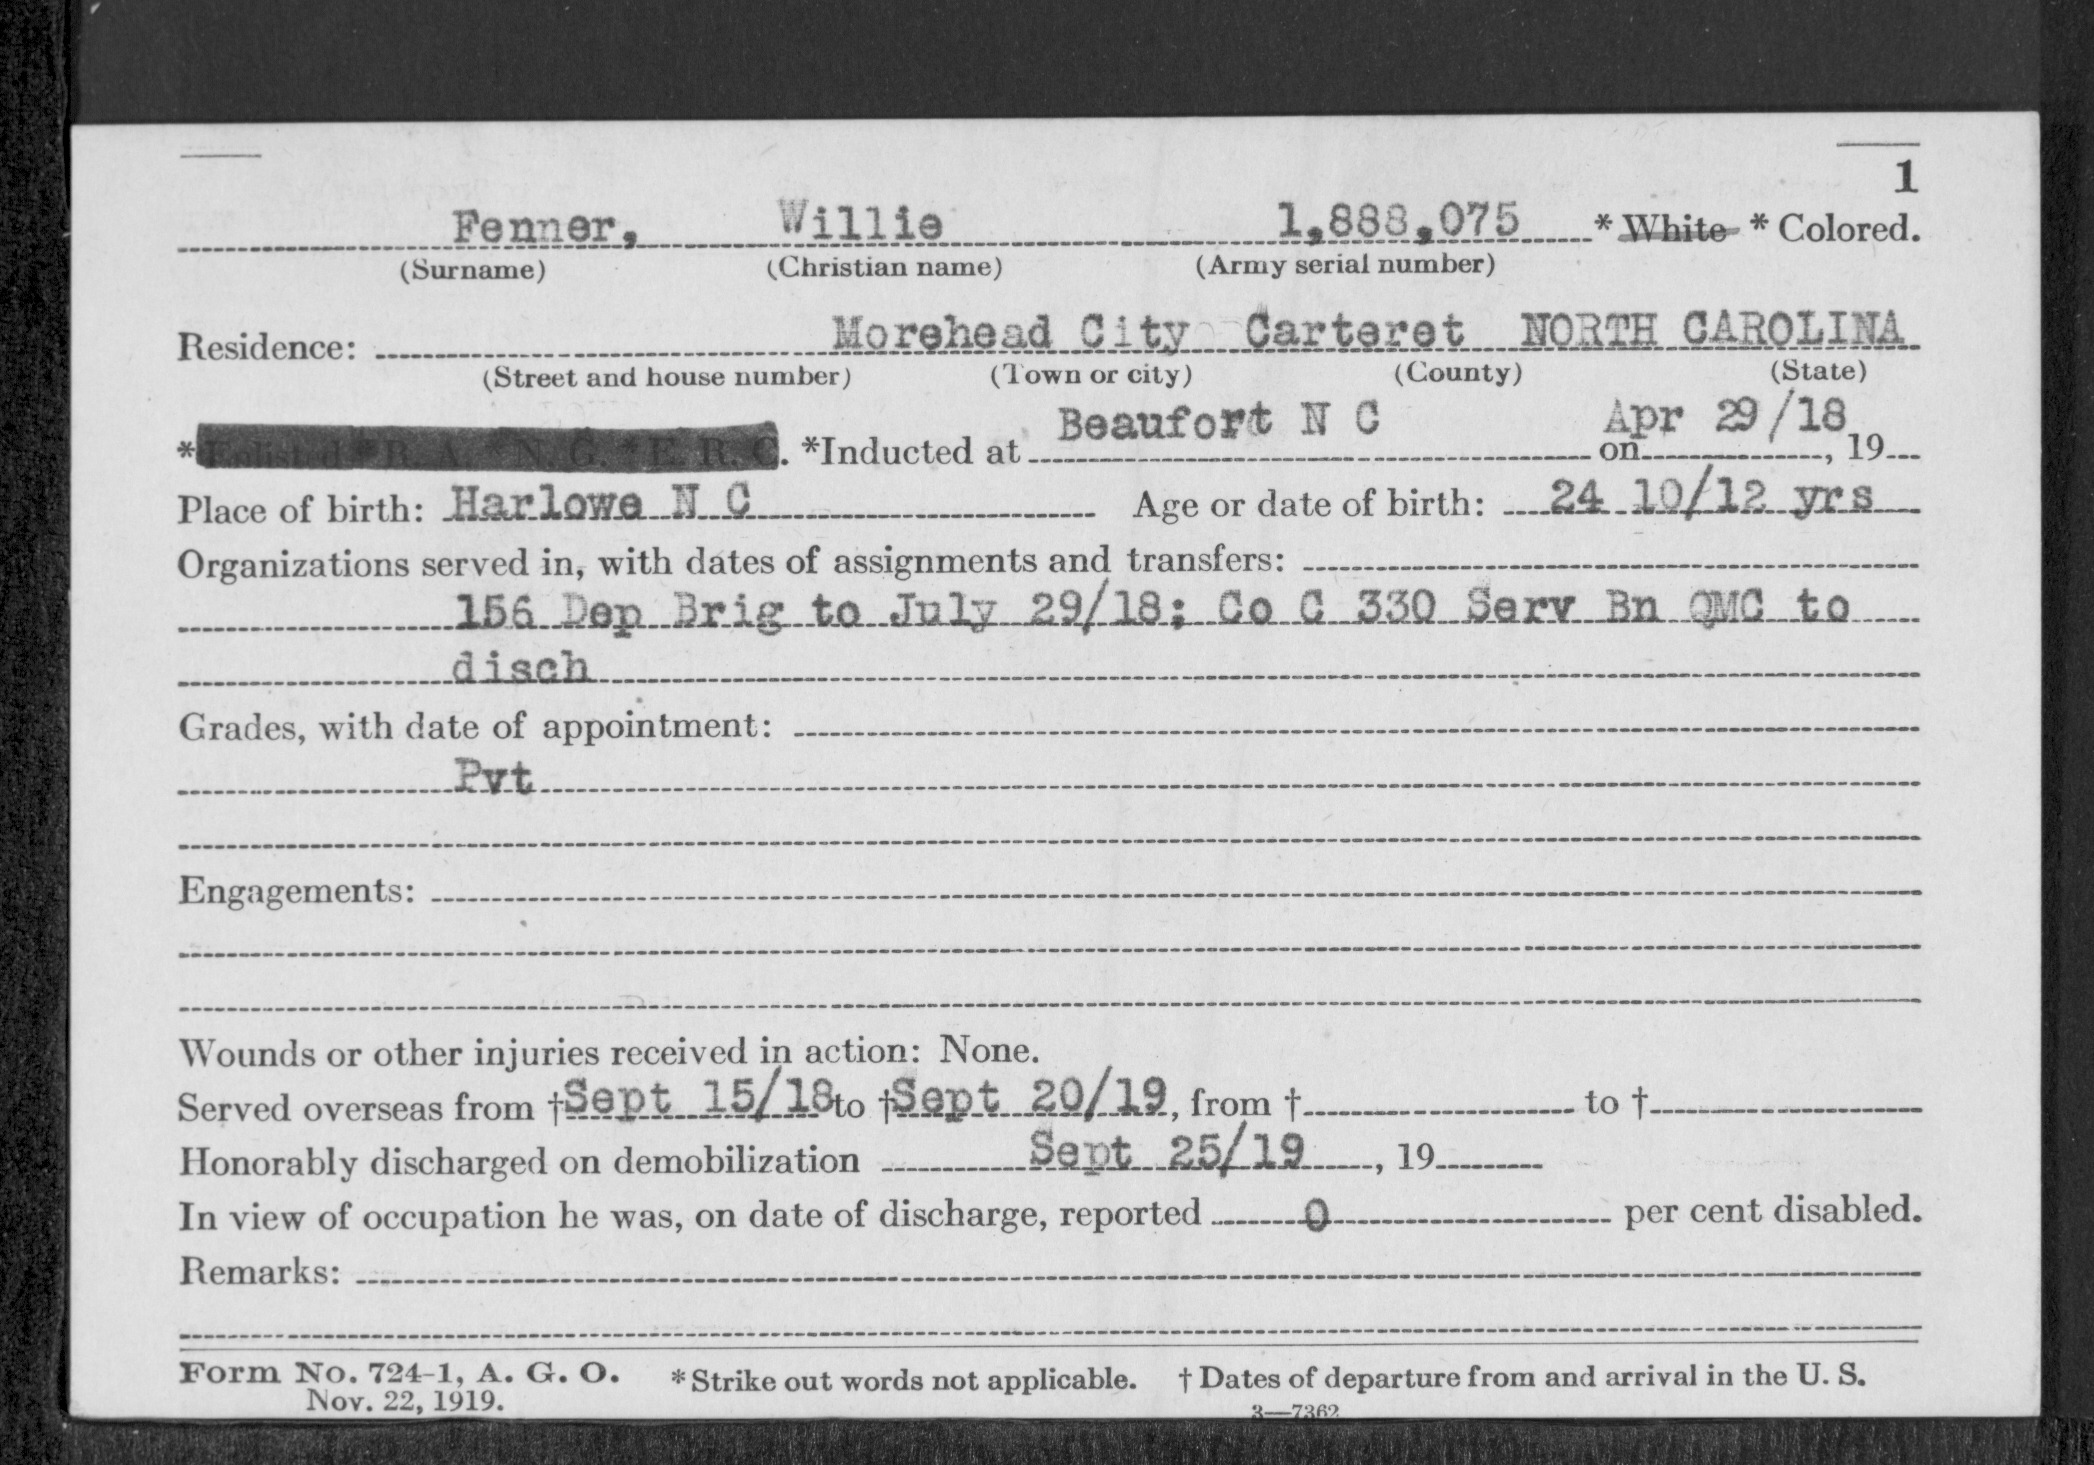 1
Fenner, Willie 1,888,075 * White * Colored.
(Surname) (Christian name) (Army serial number)
Residence: Morehead City Carteret NORTH CAROLINA
(Street and house number) (Town or city) (County) (State)
*Enlisted *R. A. *N. G. *E. R. C. *Inducted at Beaufort N C on Apr 29/18, 19
Place of birth: Harlowe N C Age or date of birth: 24 10/12 yrs
Organizations served in, with dates of assignments and transfers:
156 Dep Brig to July 29/18; Co C 330 Serv Bn QMC to
disch
Grades, with date of appointment:
Pvt
Engagements:
Wounds or other injuries received in action: None.
Served overseas from †Sept 15/18 to †Sept 20/19, from † to †
Honorably discharged on demobilization Sept 25/19, 19
In view of occupation he was, on date of discharge, reported 0 per cent disabled.
Remarks:
Form No. 724-1, A. G. O. * Strike out words not applicable. † Dates of departure from and arrival in the U. S.
Nov. 22, 1919. 3—7362